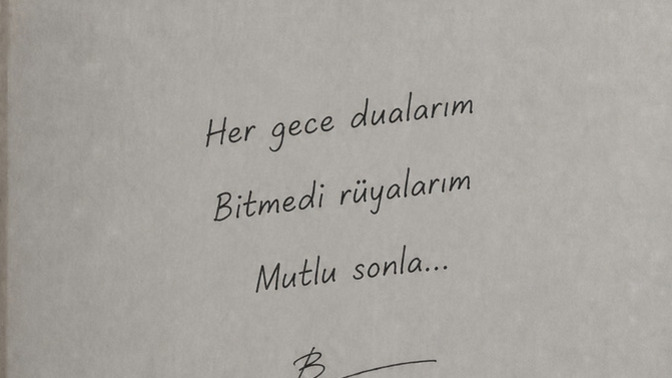 Her gece dualarım
Bitmedi rüyalarım
Mutlu sonla...
B